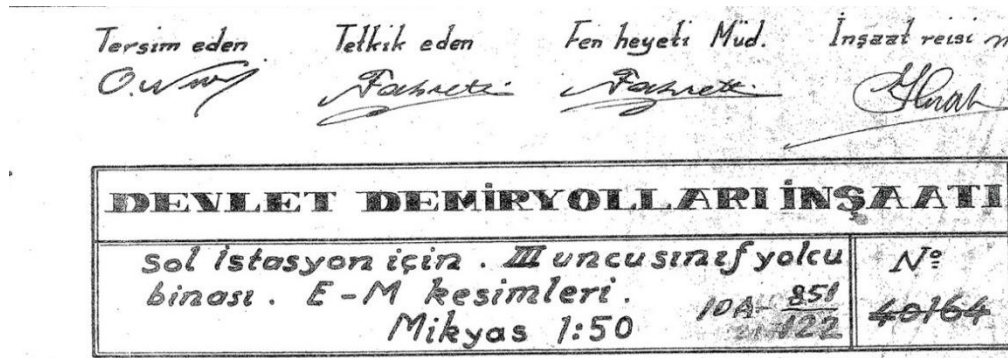 Tersim eden Tetkik eden Fen heyeti Müd. İnşaat reisi
Fahretti Fahrett.
DEVLET DEMİRYOLLARI İNŞAATI
Sol istasyon için. III uncu sınıf yolcu
binası. E-M kesimleri.
Mikyas 1:50
10A- 851
122
Nº
40164